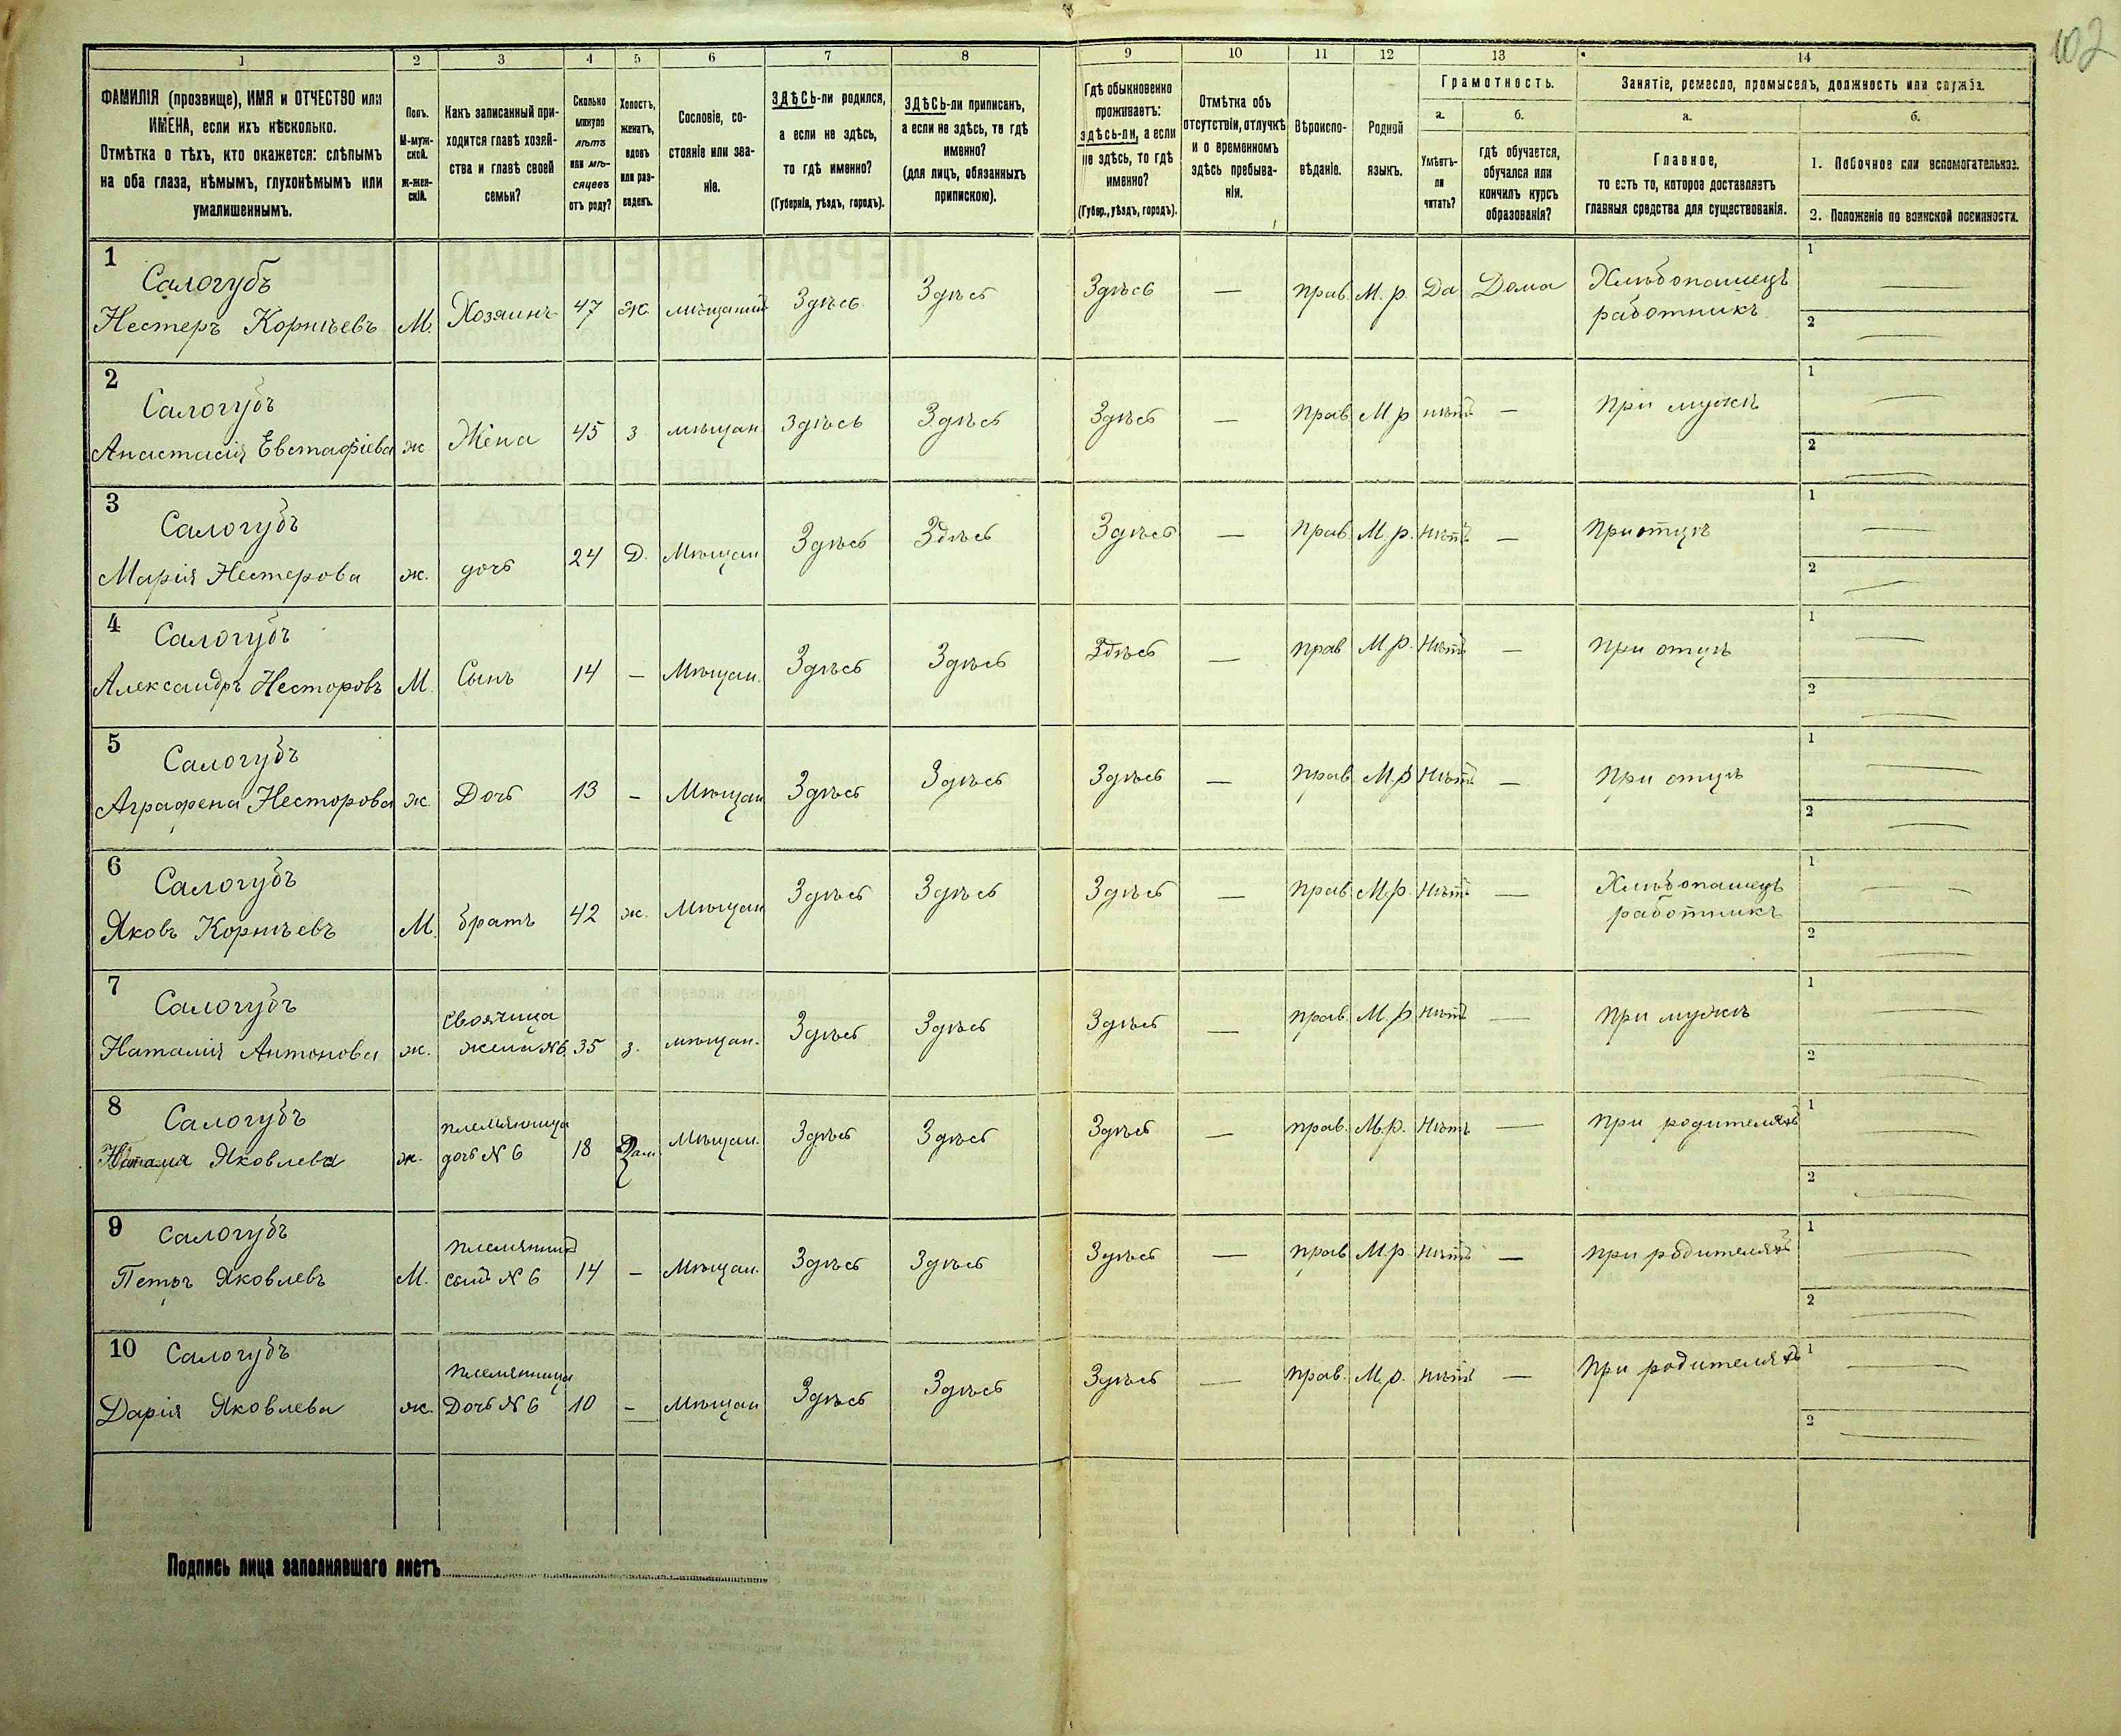 102
1 2 3 4 5 6 7 8 9 10 11 12 13 14
ФАМИЛІЯ (прозвище), ИМЯ и ОТЧЕСТВО или
ИМЕНА, если ихъ нѣсколько.
Отмѣтка о тѣхъ, кто окажется: слѣпымъ
на оба глаза, нѣмымъ, глухонѣмымъ или
умалишеннымъ.
Полъ.
М-муж-
ской.
Ж-жен-
скій.
Какъ записанный при-
ходится главѣ хозяй-
ства и главѣ своей
семьи?
Сколько
минуло
лѣтъ
или мѣ-
сяцевъ
отъ роду?
Холостъ,
женатъ,
вдовъ
или раз-
веденъ.
Сословіе, со-
стояніе или зва-
ніе.
ЗДѢСЬ-ли родился,
а если не здѣсь,
то гдѣ именно?
(Губернія, уѣздъ, городъ).
ЗДѢСЬ-ли приписанъ,
а если не здѣсь, то гдѣ
именно?
(для лицъ, обязанныхъ
припискою).
Гдѣ обыкновенно
проживаетъ:
здѣсь-ли, а если
не здѣсь, то гдѣ
именно?
(Губер., уѣздъ, городъ).
Отмѣтка объ
отсутствіи, отлучкѣ
и о временномъ
здѣсь пребыва-
ніи.
Вѣроиспо-
вѣданіе.
Родной
языкъ.
Грамотность.
а.
Умѣетъ-
ли
читать?
б.
гдѣ обучается,
обучался или
кончилъ курсъ
образованія?
Занятіе, ремесло, промыселъ, должность или служба.
а.
Главное,
то есть то, которое доставляетъ
главныя средства для существованія.
б.
1. Побочное или вспомогательное.
2. Положеніе по воинской повинности.
1 Салогубъ
Нестеръ Корнѣевъ М. Хозяинъ 47 ж. мѣщанинъ Здѣсь Здѣсь Здѣсь — прав. М. р. Да Дома Хлѣбопашецъ 1 —
работникъ 2 —
2 Салогубъ
Анастасія Евстафіева ж Жена 45 з мѣщан. Здѣсь Здѣсь Здѣсь — прав. М р нѣтъ — при мужѣ 1 —
2 —
3 Салогубъ
Марія Нестерова ж. дочь 24 Д. Мѣщан Здѣсь Здѣсь Здѣсь — прав. М. р. Нѣтъ — При отцѣ 1 —
2 —
4 Салогубъ
Александръ Несторовъ М. Сынъ 14 — Мѣщан. Здѣсь Здѣсь Здѣсь — прав М р. Нѣтъ — при отцѣ 1 —
2 —
5 Салогубъ
Аграфена Несторова ж. Дочь 13 — Мѣщан Здѣсь Здѣсь Здѣсь — прав. М. р Нѣтъ — при отцѣ 1 —
2 —
6 Салогубъ
Яковъ Корнѣевъ М. братъ 42 ж. Мѣщан Здѣсь Здѣсь Здѣсь — прав. М. р. Нѣтъ — Хлѣбопашецъ 1 —
работникъ 2 —
7 Салогубъ
Наталія Антонова ж. своячица
жена №6 35 з. мѣщан. Здѣсь Здѣсь Здѣсь — прав. М. р Нѣтъ — при мужѣ 1 —
2 —
8 Салогубъ
Яковлева ж. племянница
дочь № 6 18 Мѣщан. Здѣсь Здѣсь Здѣсь — прав. М. р. Нѣтъ — при родителяхъ 1 —
2 —
9 Салогубъ
Петръ Яковлевъ М. племянникъ
сынъ № 6 14 — Мѣщан. Здѣсь Здѣсь Здѣсь — прав М. р Нѣтъ — при родителяхъ 1 —
2 —
10 Салогубъ
Дарія Яковлева ж. племянница
Дочь № 6 10 — Мѣщан Здѣсь Здѣсь Здѣсь — прав. М. р. нѣтъ — При родителяхъ 1 —
2 —
Подпись лица заполнявшаго листъ